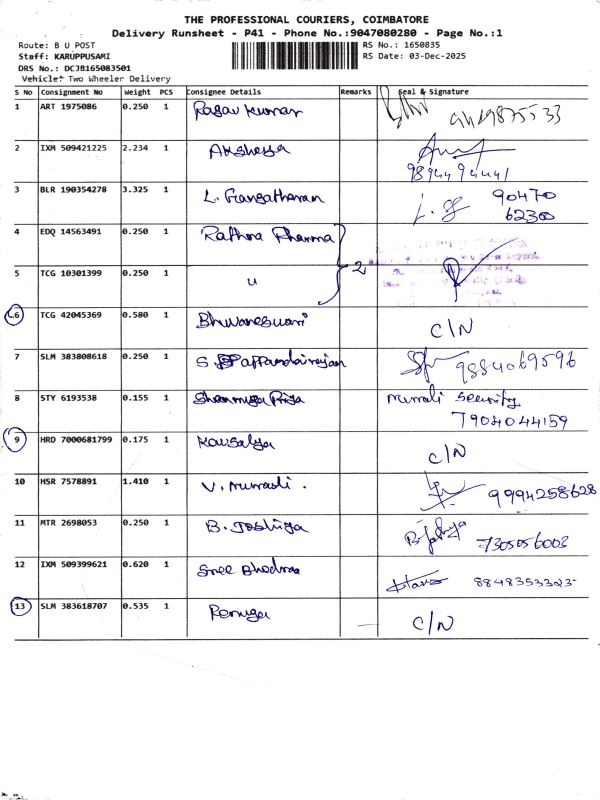 THE PROFESSIONAL COURIERS, COIMBATORE
Delivery Runsheet - P41 - Phone No.:9047080280 - Page No.:1
Route: B U POST RS No.: 1650835
Staff: KARUPPUSAMI RS Date: 03-Dec-2025
DRS No.: DCJB165083501
Vehicle: Two Wheeler Delivery
S No Consignment No Weight PCS Consignee Details Remarks Seal & Signature
1 ART 1975086 0.250 1 Ragav Kumar
2 IXM 509421225 2.234 1 Akshaya
9894494441
3 BLR 190354278 3.325 1 L. Gangatharan 90470
62300
4 EDQ 14563491 0.250 1 Rathna Pharma
2
5 TCG 10301399 0.250 1 u
6 TCG 42045369 0.580 1 Bhuvaneswari C/N
7 SLM 383808618 0.250 1 S 9884069596
8 STY 6193538 0.155 1 Shanmuga Priya Murali Security
7904044159
9 HRD 7000681799 0.175 1 Kousalya C/N
10 HSR 7578891 1.410 1 V. Murali. 9994258628
11 MTR 2698053 0.250 1 B. Joshiga 7305056003
12 IXM 509399621 0.620 1 Sree 8848353323
13 SLM 383618707 0.535 1 Renuga C/N